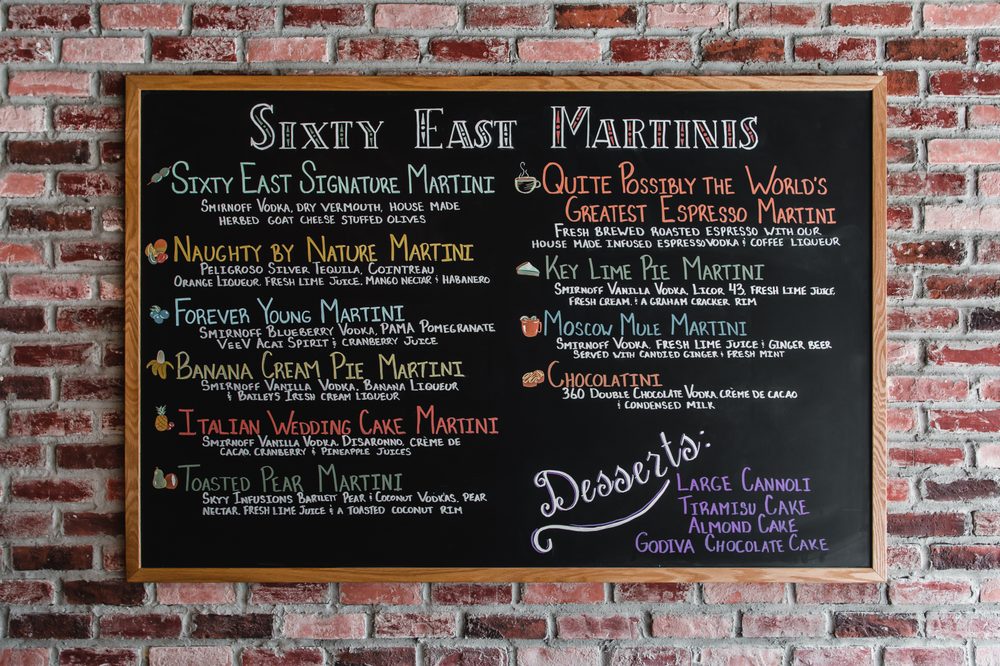 Sixty East Martinis
Sixty East Signature Martini
Smirnoff Vodka, dry vermouth, house made
herbed goat cheese stuffed olives
Naughty by Nature Martini
Peligroso Silver Tequila, Cointreau
Orange Liqueur, fresh lime juice, mango nectar & habanero
Forever Young Martini
Smirnoff Blueberry Vodka, PAMA Pomegranate
VeeV Acai Spirit & cranberry juice
Banana Cream Pie Martini
Smirnoff Vanilla Vodka, Banana Liqueur
& Baileys Irish cream liqueur
Italian Wedding Cake Martini
Smirnoff Vanilla Vodka, Disaronno, crème de
cacao, cranberry & pineapple juices
Toasted Pear Martini
Skyy Infusions Bartlett Pear & Coconut Vodkas, pear
nectar, fresh lime juice & a toasted coconut rim
Quite Possibly the World's
Greatest Espresso Martini
Fresh brewed roasted espresso with our
house made infused espresso vodka & coffee liqueur
Key Lime Pie Martini
Smirnoff Vanilla Vodka, Licor 43, fresh lime juice,
fresh cream, & a graham cracker rim
Moscow Mule Martini
Smirnoff Vodka, fresh lime juice & ginger beer
served with candied ginger & fresh mint
Chocolatini
360 Double Chocolate Vodka, crème de cacao
& condensed milk
Desserts:
Large Cannoli
Tiramisu Cake
Almond Cake
Godiva Chocolate Cake